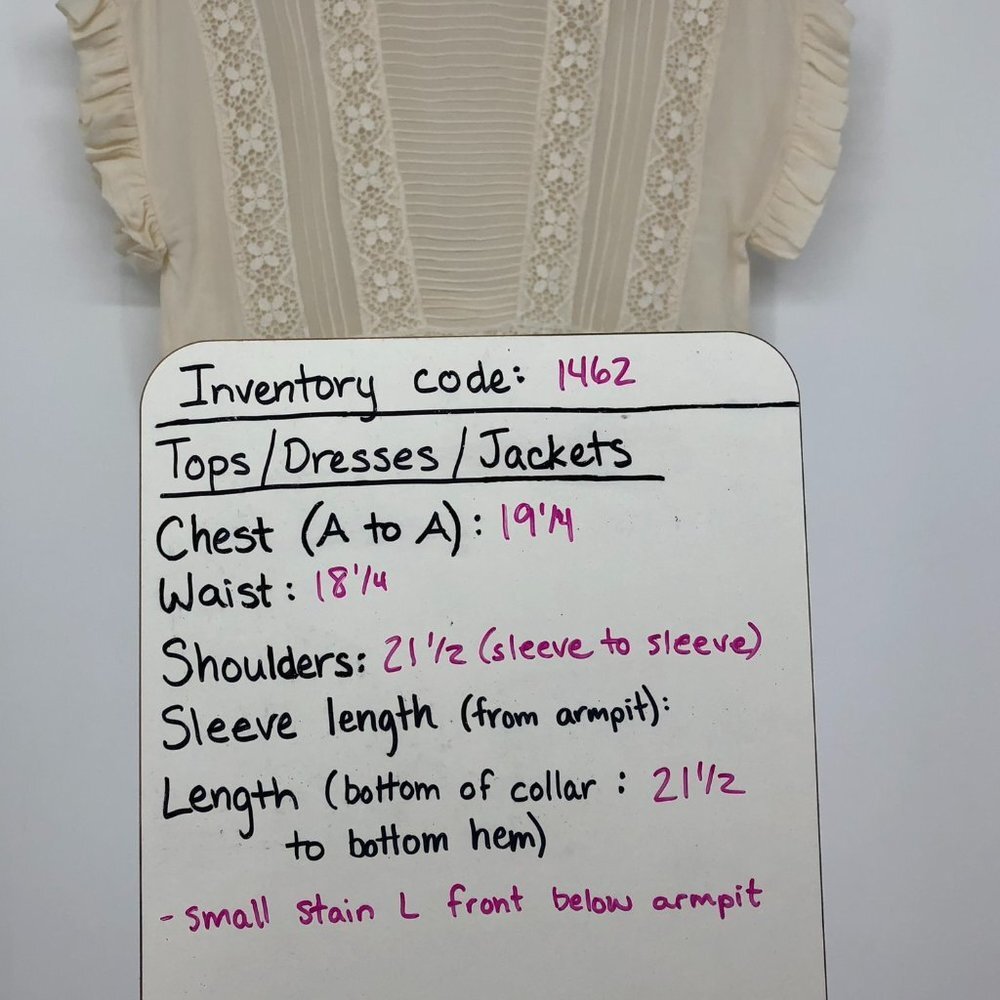 Inventory code: 1462
Tops/Dresses/Jackets
Chest (A to A): 19 1/4
Waist: 18 1/4
Shoulders: 21 1/2 (sleeve to sleeve)
Sleeve length (from armpit):
Length (bottom of collar : 21 1/2
to bottom hem)
- small stain L front below armpit